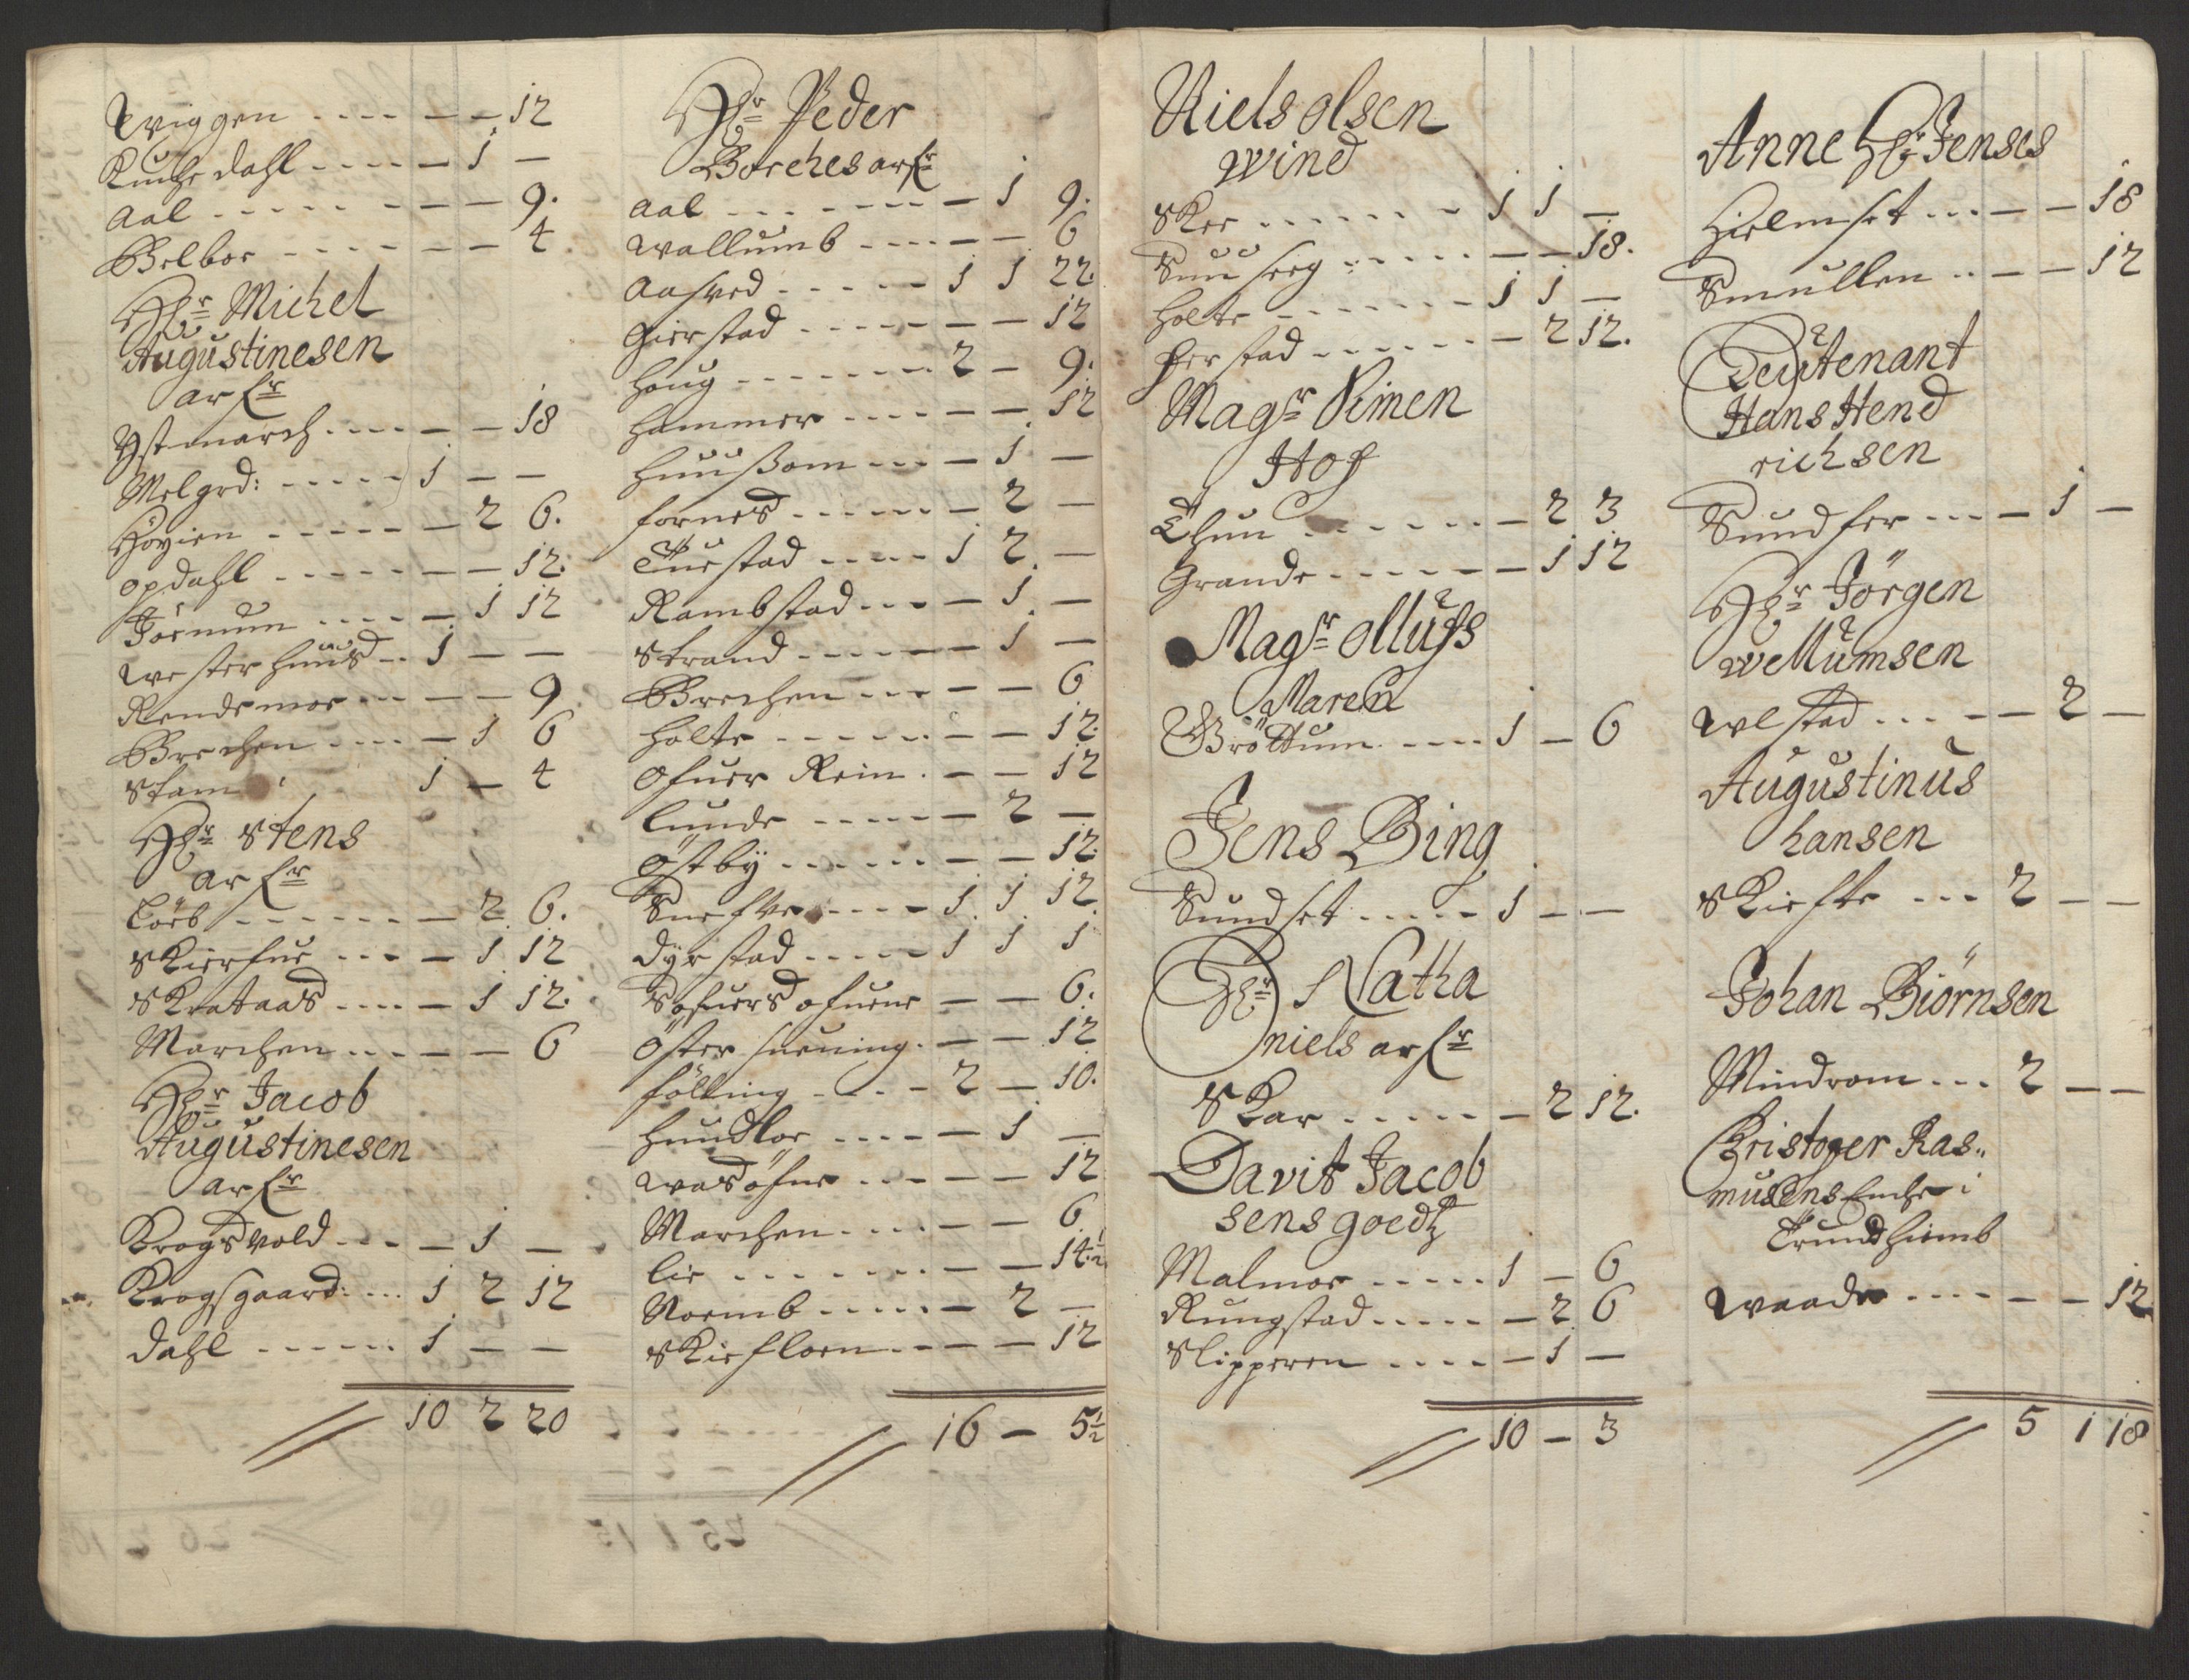 Wiggen - - - - - - 12
Kuche dahl - - - - - 1 -
Aal - - - - - - - - 9.
Belboe - - - - - - - 4
Hr Michel
Augustinesen
arfr
Ystmarch - - - - - - 18
Melgrd: - - - - - 1 - -
Høyien - - - - - - 2 6.
opdahl - - - - - - - 12.
Jørnum - - - - - 1 12
westerhuus - - 1 - -
Rendemoe - - - - - 9
Brechen - - - - - 1 6
Stam 1 - 4
Hr Stens
arfr
Lørb - - - - - - - 2 6.
Skierfue - - - - 1 12
Skrataas - - - - - 1 12.
Marchen - - - - - - 6
Hr Jacob
Augustinesen
arfr
Krogsvold - - - - 1 -
Krogsgaard: - - - 1 2 12
dahl - - - - - - 1 - -
10 2 20
Hr Peder
Borches arfr
Aal - - - - - - - - 1 9.
wallumb - - - - - - 6
Aasved - - - - - 1 1 22.
Gierstad - - - - - - - 12
houg - - - - - - - 2 - 9.
hammer - - - - - - 12
huusom - - - - 1 -
fornes - - - - - - - 2 -
Tuestad - - - - 1 2 -
Rambstad - - - - 1 -
Strand - - - - - - 1 -
Brechen - - - - - 6
holte - - - - - - - - 12.
Ofuer Rein - - - 12
lunde - - - - - - 2 -
Østbÿ - - - - - - - - 12.
Snefve - - - - 1 1 12.
dyrstad - - - - - 1 1 1
Søfuers ofuene - - 6.
Øster sneuing - - - 12
følling - - - - 2 - 10.
hundloe - - - - - 1 -
wasøfue - - - - - 12
Marchen - - - - - 6
lie - - - - - - - - - 14½
Noemb - - - - - - 2 -
Skiefloen - - - - - 12
16 - 5½
Niels olsen
wind
Sker - - - - - - - 1 1 -
Suuseeg - - - - - - - 18.
holte - - - - - - - 1 1 -
herstad - - - - - - - 2 12.
Magr Simen
Hof
Thun - - - - - - - 2 3
Grande - - - - - - 1 12
Magr olluss
Maren
Brøttum - - - - 1 - 6
Jens Bing
Sundset - - - - - 1 - -
Hr Natha
niels arfr
Skar - - - - - - 2 12.
Davit Jacob
sens goedtz
Malmoe - - - - - 1 - 6
Rungstad - - - - - - 2 6
Slipperen - - - - - 1 -
10 - 3
Anne Hr Jenses
Hielmset - - - - - 18
Smullen - - - - 12
Leytenant
Hans Hend
richsen
Sundser - - - - 1 -
Hr Jørgen
wellumsen
wlstad - - - - - 2 -
Augustinus
hansen
Skiefte - - - 2 - -
Johan Biørnsen
Mindrom - - - 2 - -
Cristoper Ras„
musens Enche i
Trundhiemb
waade - - - - - - 12
5 1 18